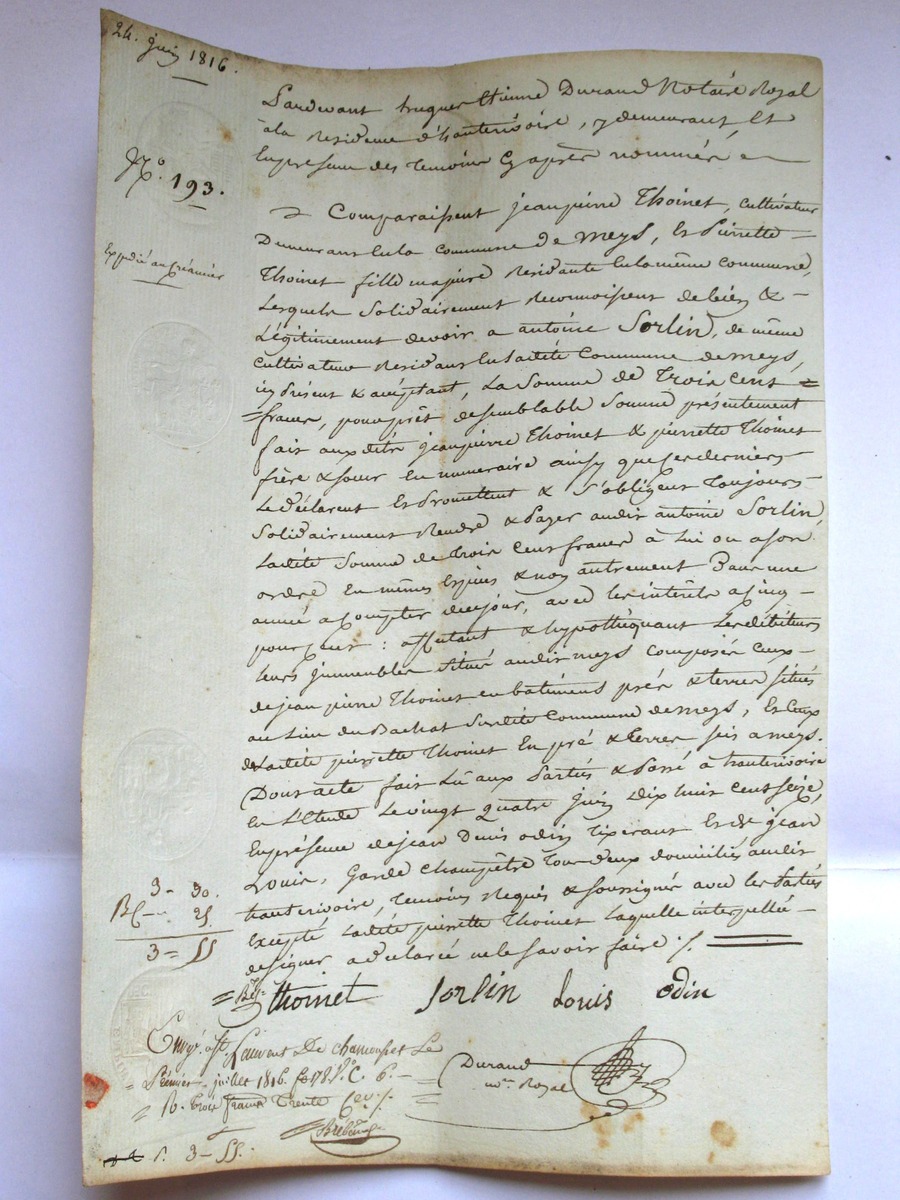 24. juin 1816.
N.o 193.
Expédié au créancier
Pardevant Etienne Durand Notaire Royal
à la residence d'hauterivoire, y demeurant Et
En presence des temoins Cy après nommés
Comparaissent jean pierre Thoinet, cultivateur
Demeurant En la commune de Meys, Et Pierrette =
Thoinet fille majeure residante En la même commune,
Lesquels Solidairement reconnoissent de bien & -
Légitimement devoir a antoine Sorlin, de même
cultivateur residant En ladite Commune de meys,
icy présent & acceptant, La Somme de Trois Cent =
= francs, pour prêt de semblable Somme présentement
fait auxdits jean pierre Thoinet & pierrette Thoinet
frère & soeur En numeraire ainsy que ces derniers -
Le déclarent Et Promettent & S'obligent Toujours -
Solidairement Rendre & Payer audit antoine Sorlin,
Ladite Somme de trois Cent francs à Lui ou a son
ordre En mêmes Espèces & non autrement Dans une
année a Compter de ce jour, avec les intérêts a cinq -
pour Cent : affectant & hypothéquant Les débiteurs
Leurs jmmeubles situés audit meys composés Ceux -
de jean pierre Thoinet en batiments prés & terres situés
au Lieu du Bachat Susdite Commune de meys, Et Ceux
de Ladite pierrette Thoinet En pré & terres sis a meys.
Dont acte fait Lû aux Parties & Passé à hauterivoire
En L'Etude Le vingt quatre juin Dix huit cent seize,
En présence de jean Denis odin Tixerant Et de jean
Louis, Garde champêtre Tous deux domiciliés audit
hauterivoire, Temoins Requis & soussignés avec les Parties
Excepté Ladite pierrette Thoinet Laquelle interpellée -
de signer a déclaré ne le savoir faire ./.
3 - 30.
25.
3 = 55
thoinet Sorlin Louis odin
Enreg.é à St Laurent De chamousset Le
Premier juillet 1816. f.o 178 V.o C. 6. -
R. trois francs Trente Ces /.
Durand
n.re Royal
3 - 55.